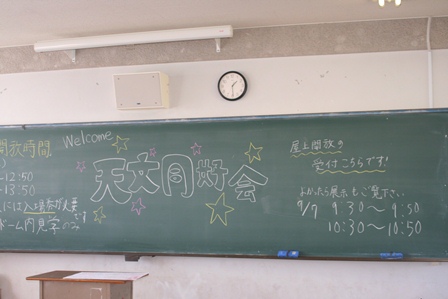 開放時間
12:50
13:50
ーム内見学のみ
Welcome
天文同好会
屋上開放の
受付こちらです!
よかったら展示もご覧下さい
9/7 9:30～9:50
10:30～10:50